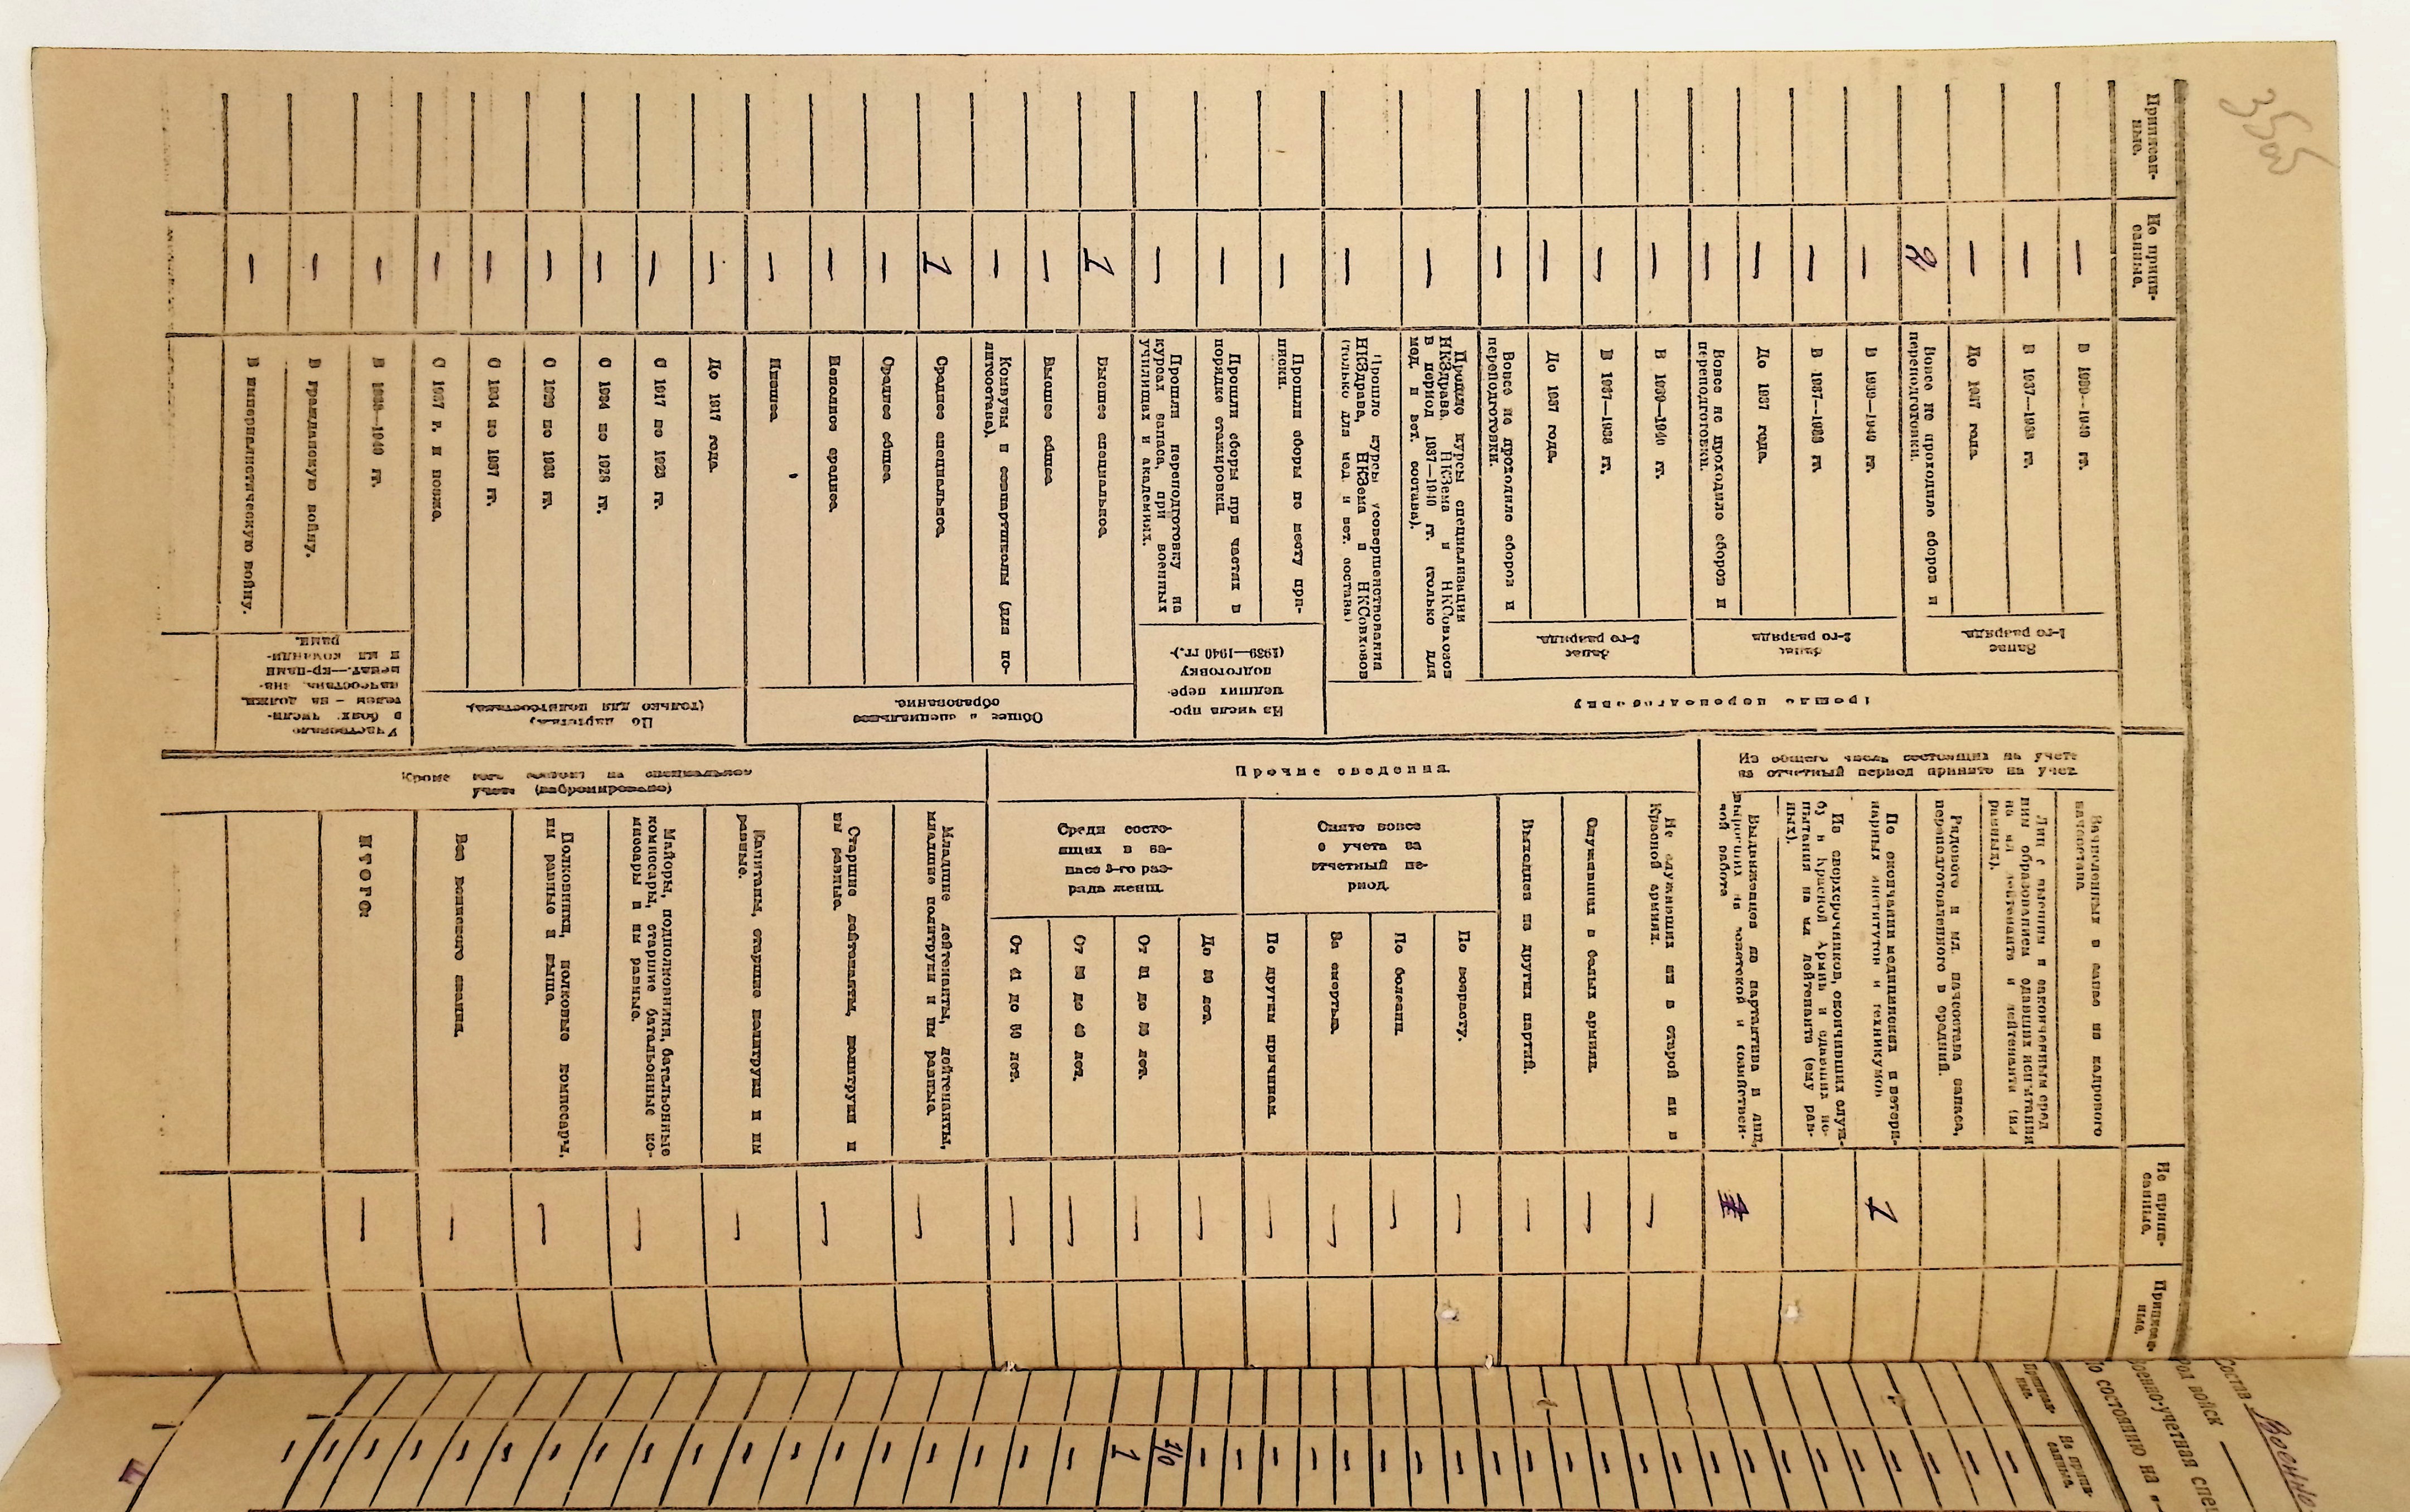 35об
Приписан-
ные.
Не припи-
санные.
Прошло переподготовку
Запас
1-го разряда
В 1939—1940 гг.
—
В 1937—1938 гг.
—
До 1937 года.
—
Вовсе не проходило сборов и
переподготовки.
2
Запас
2-го разряда
В 1939—1940 гг.
—
В 1937—1938 гг.
—
До 1937 года.
—
Вовсе не проходило сборов и
переподготовки.
—
Запас
3-го разряда
В 1939—1940 гг.
—
В 1937—1938 гг.
—
До 1937 года.
—
Вовсе не проходило сборов и
переподготовки.
—
Прошло курсы специализации
НКЗдрава, НКЗема и НКСовхозов
в период 1937—1940 гг. (только для
мед. и вет. состава).
—
Прошло курсы усовершенствования
НКЗдрава, НКЗема и НКСовхозов
(только для мед и вет. состава)
—
Из числа про-
шедших пере-
подготовку
(1939—1940 гг.)
Прошли сборы по месту при-
писки.
—
Прошли сборы при частях в
порядке стажировки.
—
Прошли переподготовку на
курсах запаса, при военных
училищах и академиях.
—
Общее и специальное
образование.
Высшее специальное.
1
Высшее общее.
—
Комвузы и совпартшколы (для по-
литсостава).
—
Среднее специальное.
1
Среднее общее.
—
Неполное среднее.
—
Низшее.
—
По партстажу
(только для политсостава).
До 1917 года.
—
С 1917 по 1923 гг.
—
С 1924 по 1928 гг.
—
С 1929 по 1933 гг.
—
С 1934 по 1937 гг.
—
С 1937 г. и позже.
—
Участвовало
в боях: числи-
телем — на должн.
начсостава, зна-
менат.—кр-цами
и мл команди-
рами.
В 1938—1940 гг.
—
В гражданскую войну.
—
В империалистическую войну.
—
Из общего числа состоящих на учете
за отчетный период принято на учет
Зачисленных в запас из кадрового
начсостава
Лиц с высшим и законченным сред
ним образованием сдавших испытания
на мл лейтенанта и лейтенанта (им
равных).
Рядового и мл. начсостава запаса,
переподготовленного в средний.
По окончании медицинских и ветери-
нарных институтов и техникумов
1
Из сверхсрочников, окончивших служ-
бу в Красной Армии и сдавших ис-
пытания на мл лейтенанта (ему рав-
ных).
Выдвиженцев из партактива и лиц,
выросших на советской и хозяйствен-
ной работе
Прочие сведения
Не служивших ни в старой ни в
Красной армиях.
—
Служивших в белых армиях.
—
Выходцев из других партий.
—
Снято вовсе
с учета за
отчетный пе-
риод.
По возрасту.
—
По болезни.
—
За смертью.
—
По другим причинам.
—
Среди состо-
ящих в за-
пасе 3-го раз-
ряда женщ.
До 30 лет.
—
От 31 до 35 лет.
—
От 36 до 40 лет.
—
От 41 до 50 лет.
—
Кроме того состоит на специальном
учете (забронировано)
Младшие лейтенанты, лейтенанты,
младшие политруки и им равные.
—
Старшие лейтенанты, политруки и
им равные.
—
Капитаны, старшие политруки и им
равные.
—
Майоры, подполковники, батальонные
комиссары, старшие батальонные ко-
миссары и им равные.
—
Полковники, полковые комиссары,
им равные и выше.
—
Без воинского звания.
—
ИТОГО:
—
Не припи-
санные.
Приписан-
ные.
Состав Военно
Род войск —
Военно-учетная спец
По состоянию на
Приписан-
ные.
Не припи-
санные.
1/0
1